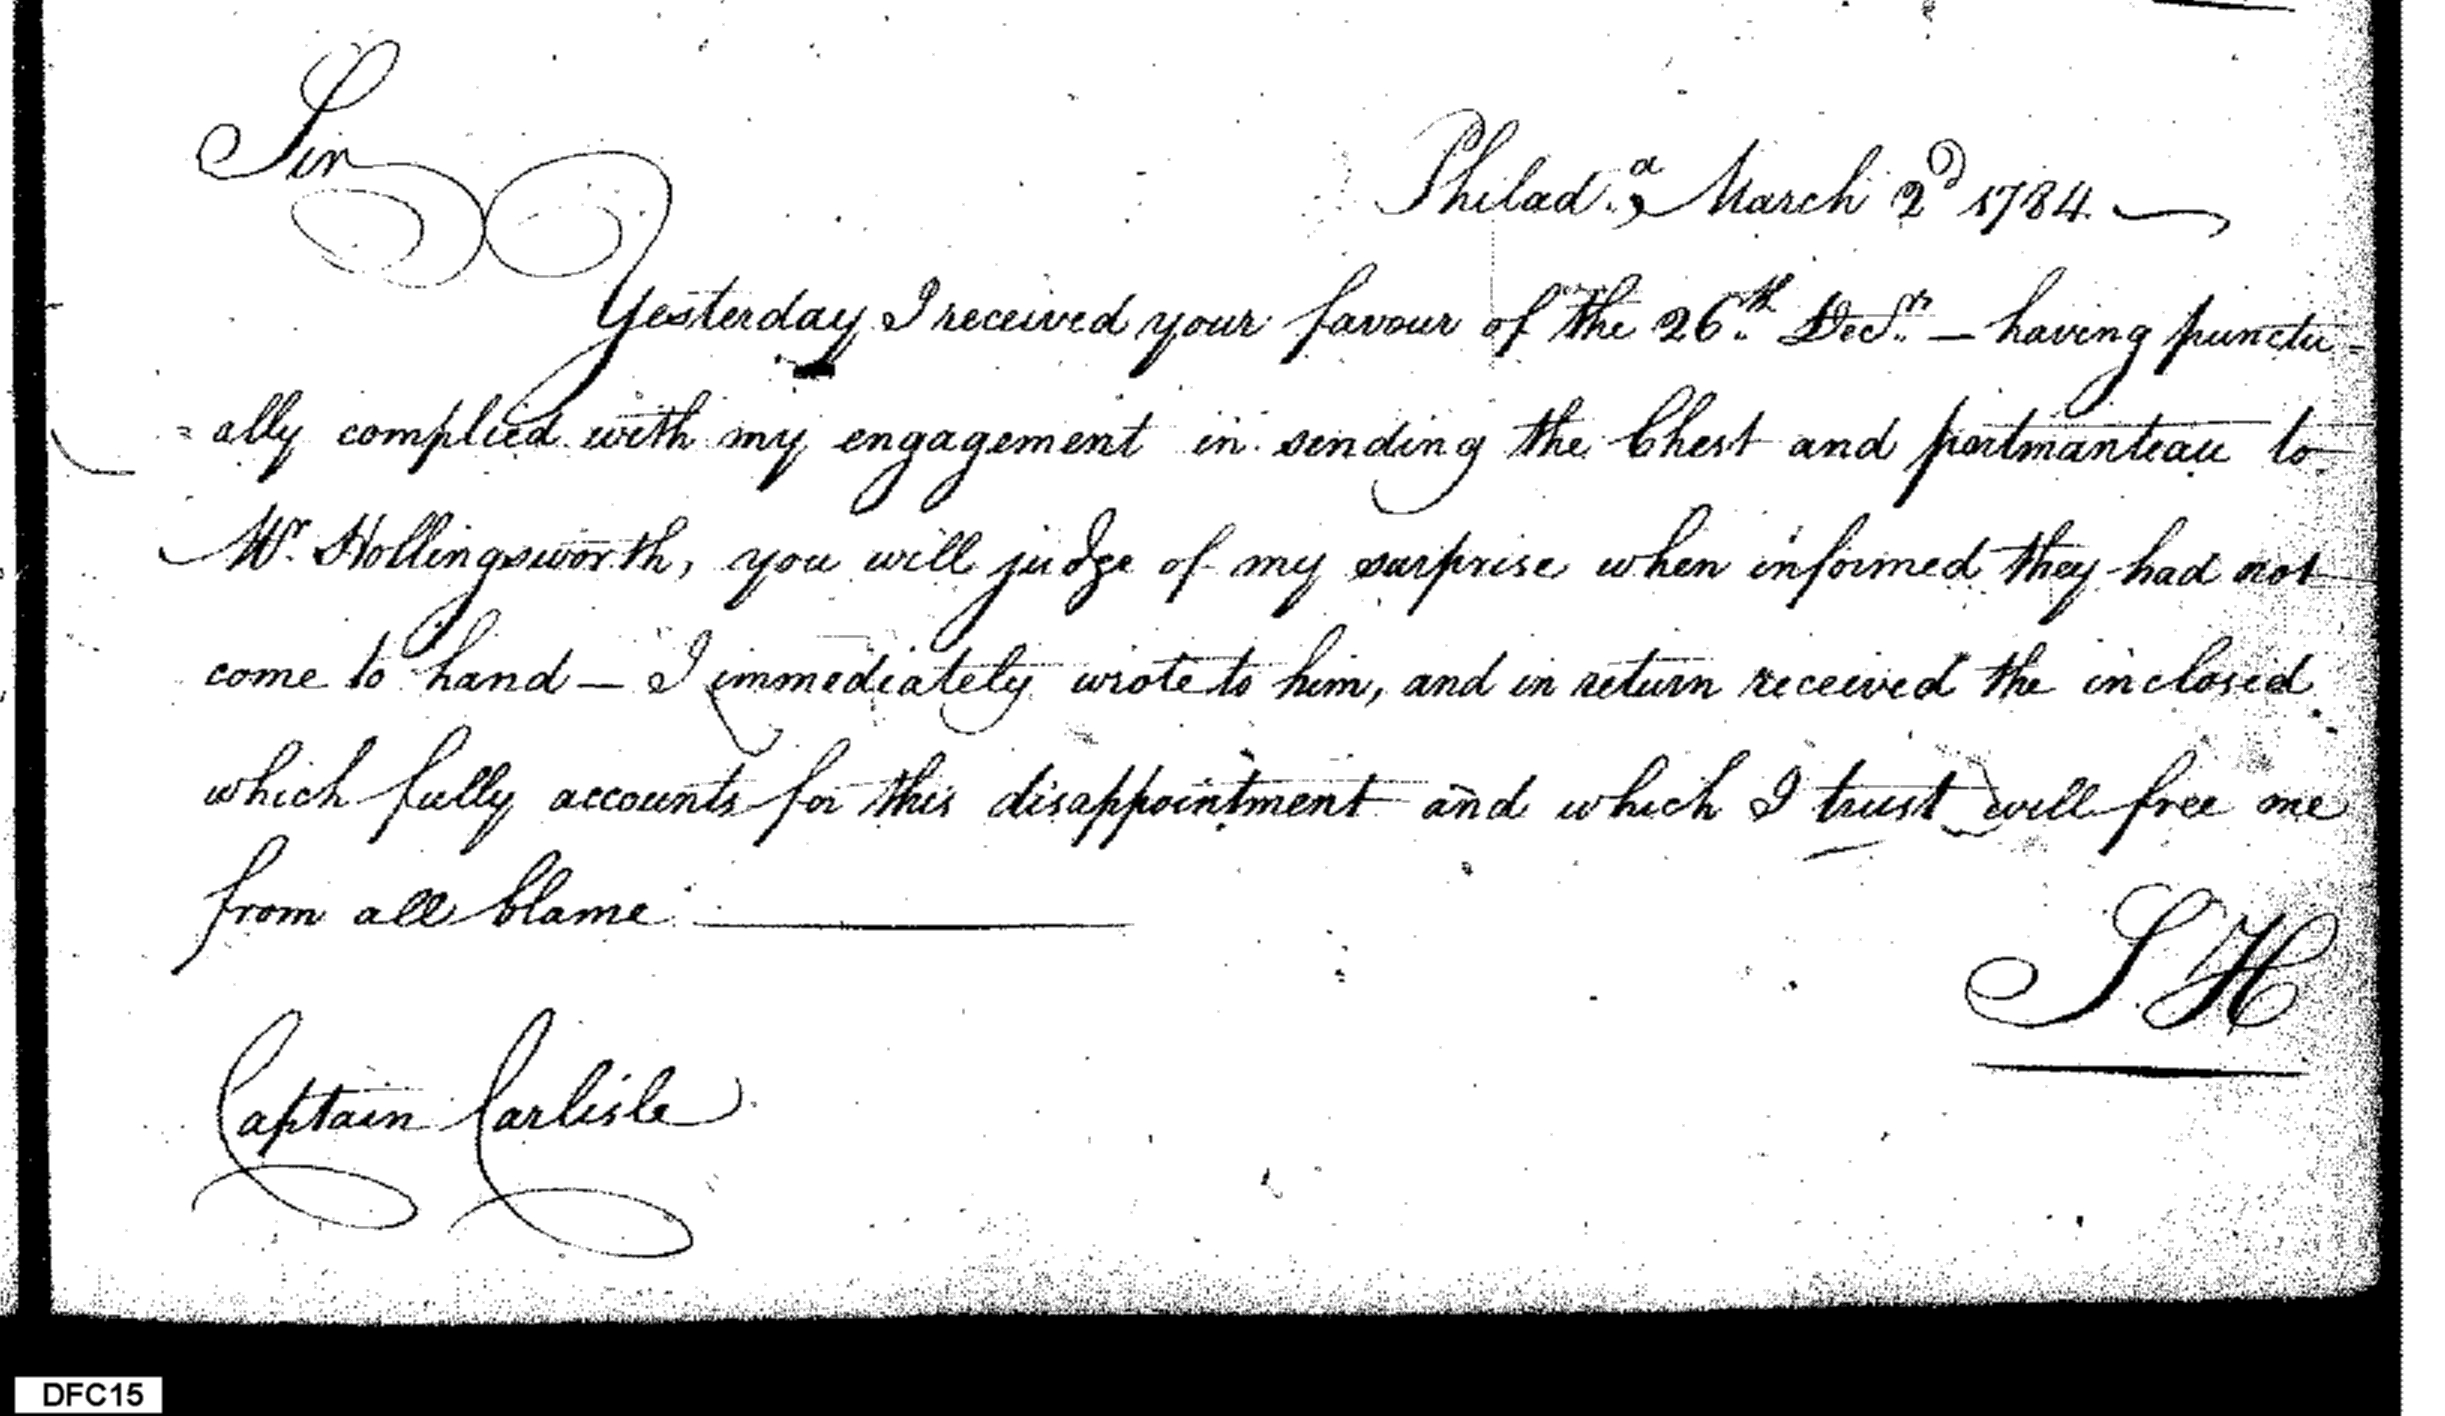 Sir
Philad.ª, March 2d 1784.
Yesterday I received your favour of the 26.th Decr. — having punctu-
=ally complied with my engagement in sending the Chest and portmanteau to
Mr. Hollingsworth, you will judge of my surprise when informed they had not
come to hand — I immediately wrote to him, and in return received the inclosed
which fully accounts for this disappointment and which I trust will free me
from all blame
S H
Captain Carlisle
DFC15